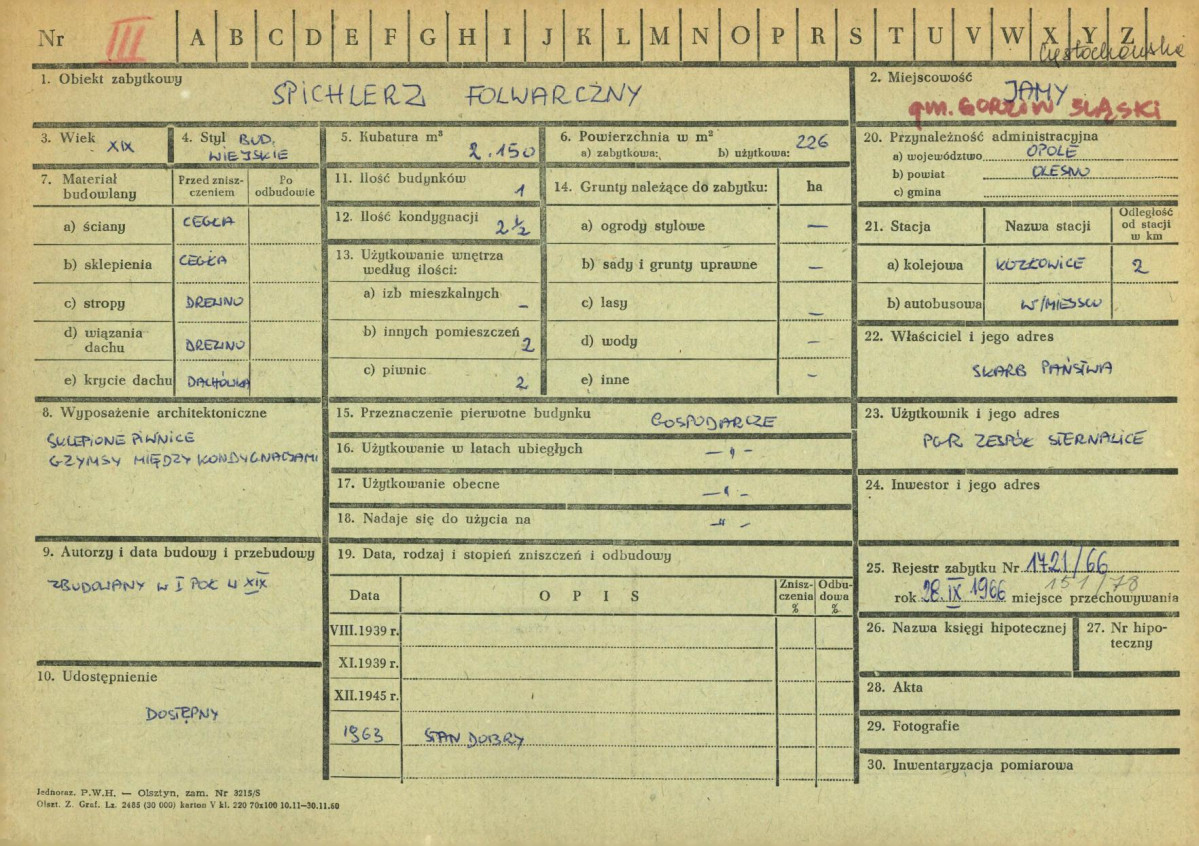 Nr III A B C D E F G H I J K L M N O P R S T U V W X Y Z
Częstochowskie
1. Obiekt zabytkowy
SPICHLERZ FOLWARCZNY
2. Miejscowość
JAMY
gm. GORZÓW ŚLĄSKI
3. Wiek XIX
4. Styl BUD.
WIEJSKIE
5. Kubatura m³
2.150
6. Powierzchnia w m²
a) zabytkowa: b) użytkowa: 226
7. Materiał budowlany
Przed znisz-
czeniem
Po
odbudowie
a) ściany CEGŁA
b) sklepienia CEGŁA
c) stropy DREWNO
d) wiązania
dachu DREWNO
e) krycie dachu DACHÓWKA
8. Wyposażenie architektoniczne
SKLEPIONE PIWNICE
GZYMSY MIĘDZY KONDYGNACJAMI
9. Autorzy i data budowy i przebudowy
ZBUDOWANY W I POŁ W XIX
10. Udostępnienie
DOSTĘPNY
11. Ilość budynków
1
12. Ilość kondygnacji
2 ½
13. Użytkowanie wnętrza
według ilości:
a) izb mieszkalnych –
b) innych pomieszczeń 2
c) piwnic 2
14. Grunty należące do zabytku: ha
a) ogrody stylowe —
b) sady i grunty uprawne —
c) lasy —
d) wody –
e) inne –
15. Przeznaczenie pierwotne budynku GOSPODARCZE
16. Użytkowanie w latach ubiegłych — " –
17. Użytkowanie obecne — " –
18. Nadaje się do użycia na – " –
19. Data, rodzaj i stopień zniszczeń i odbudowy
Data OPIS
Znisz-
czenia
%
Odbu-
dowa
%
VIII.1939 r.
XI.1939 r.
XII.1945 r.
1963 STAN DOBRY
20. Przynależność administracyjna
a) województwo OPOLE
b) powiat OLESNO
c) gmina
21. Stacja Nazwa stacji
Odległość
od stacji
w km
a) kolejowa KOZŁOWICE 2
b) autobusowa W/MIEJSCU
22. Właściciel i jego adres
SKARB PAŃSTWA
23. Użytkownik i jego adres
PGR ZESPÓŁ STERNALICE
24. Inwestor i jego adres
25. Rejestr zabytku Nr 1721/66
151/78
rok 28.IX 1966 miejsce przechowywania
26. Nazwa księgi hipotecznej
27. Nr hipo-
teczny
28. Akta
29. Fotografie
30. Inwentaryzacja pomiarowa
Jednoraz. P.W.H. — Olsztyn, zam. Nr 3215/S
Olszt. Z. Graf. Lz. 2485 (30 000) karton V kl. 220 70x100 10.11—30.11.60